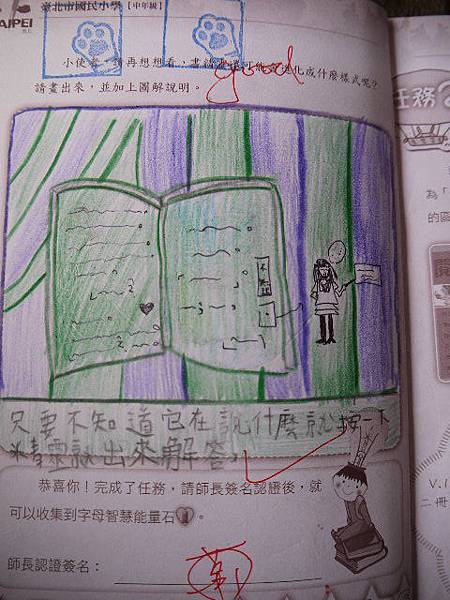 臺北市國民小學【中年級】
TAIPEI
小使者，請再想想看，書籍還可能會進化成什麼樣式呢？
請畫出來，並加上圖解說明。
good
任務
為「
的區
只要不知道它在說什麼就按一下
精靈就出來解答。
恭喜你！完成了任務，請師長簽名認證後，就
可以收集到字母智慧能量石。
V.1
二冊
師長認證簽名：